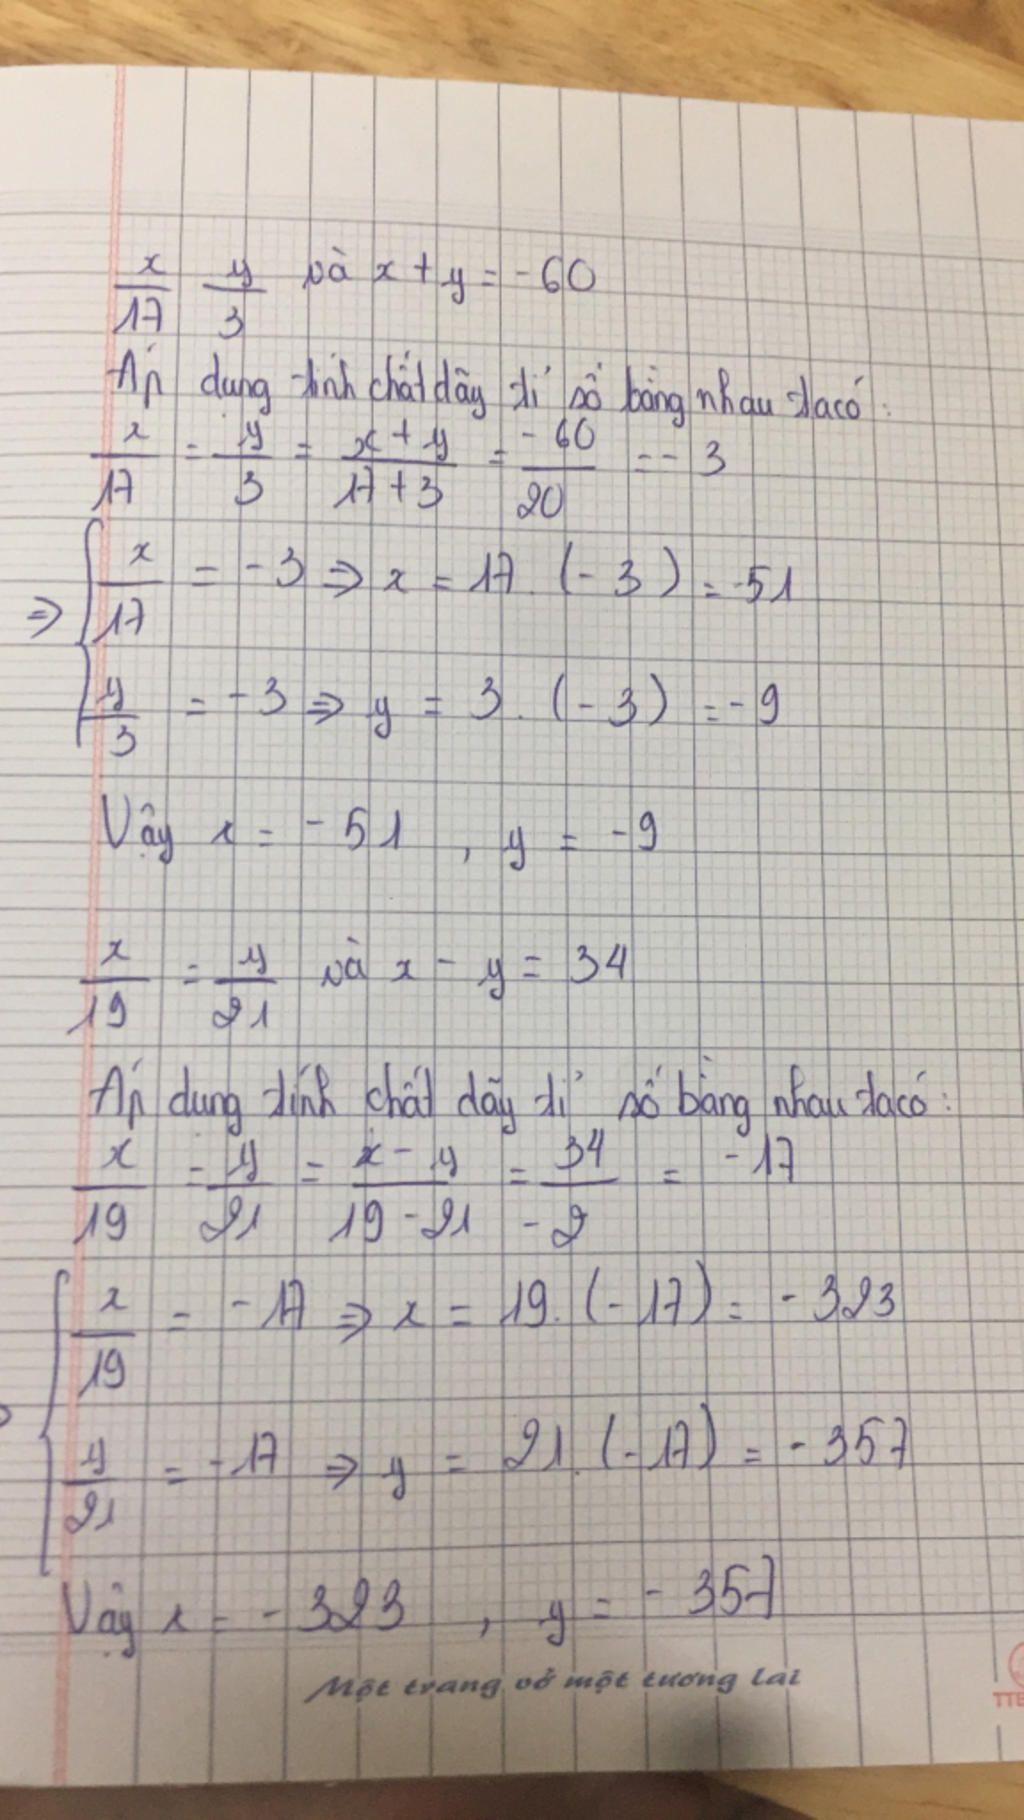 x/17 y/3 và x + y = -60
Áp dung tính chất dãy tỉ số bằng nhau ta có:
x/17 = y/3 = x + y/17 + 3 = -60/20 = -3
⇒ { x/17 = -3 ⇒ x = 17 . (-3) = -51
y/3 = -3 ⇒ y = 3 . (-3) = -9
Vậy x = -51 , y = -9
x/19 = y/21 và x - y = 34
Áp dung tính chất dãy tỉ số bằng nhau ta có:
x/19 = y/21 = x - y/19 - 21 = 34/-2 = -17
{ x/19 = -17 ⇒ x = 19 . (-17) = -323
y/21 = -17 ⇒ y = 21 . (-17) = -357
Vậy x = -323 , y = -357
Một trang vở một tương lai